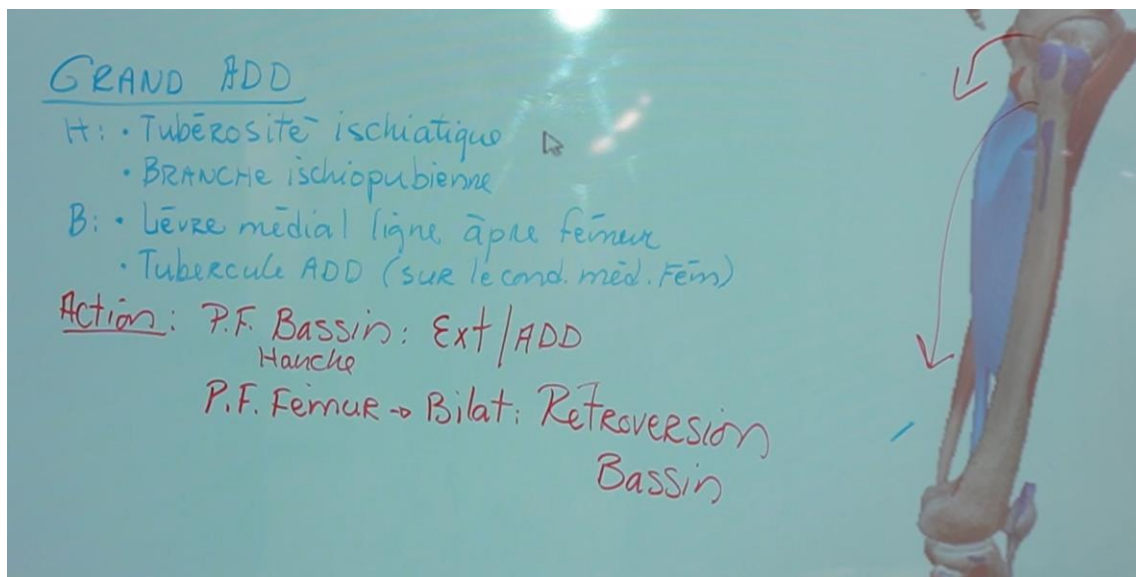 GRAND ADD
H: • Tubérosité ischiatique
• BRANCHE ischiopubienne
B: • Lèvre médial ligne âpre fémur
• Tubercule ADD (sur le cond. méd. Fém)
Action: P.F. Bassin: Ext/ADD
Hanche
P.F. Fémur → Bilat: Rétroversion
Bassin